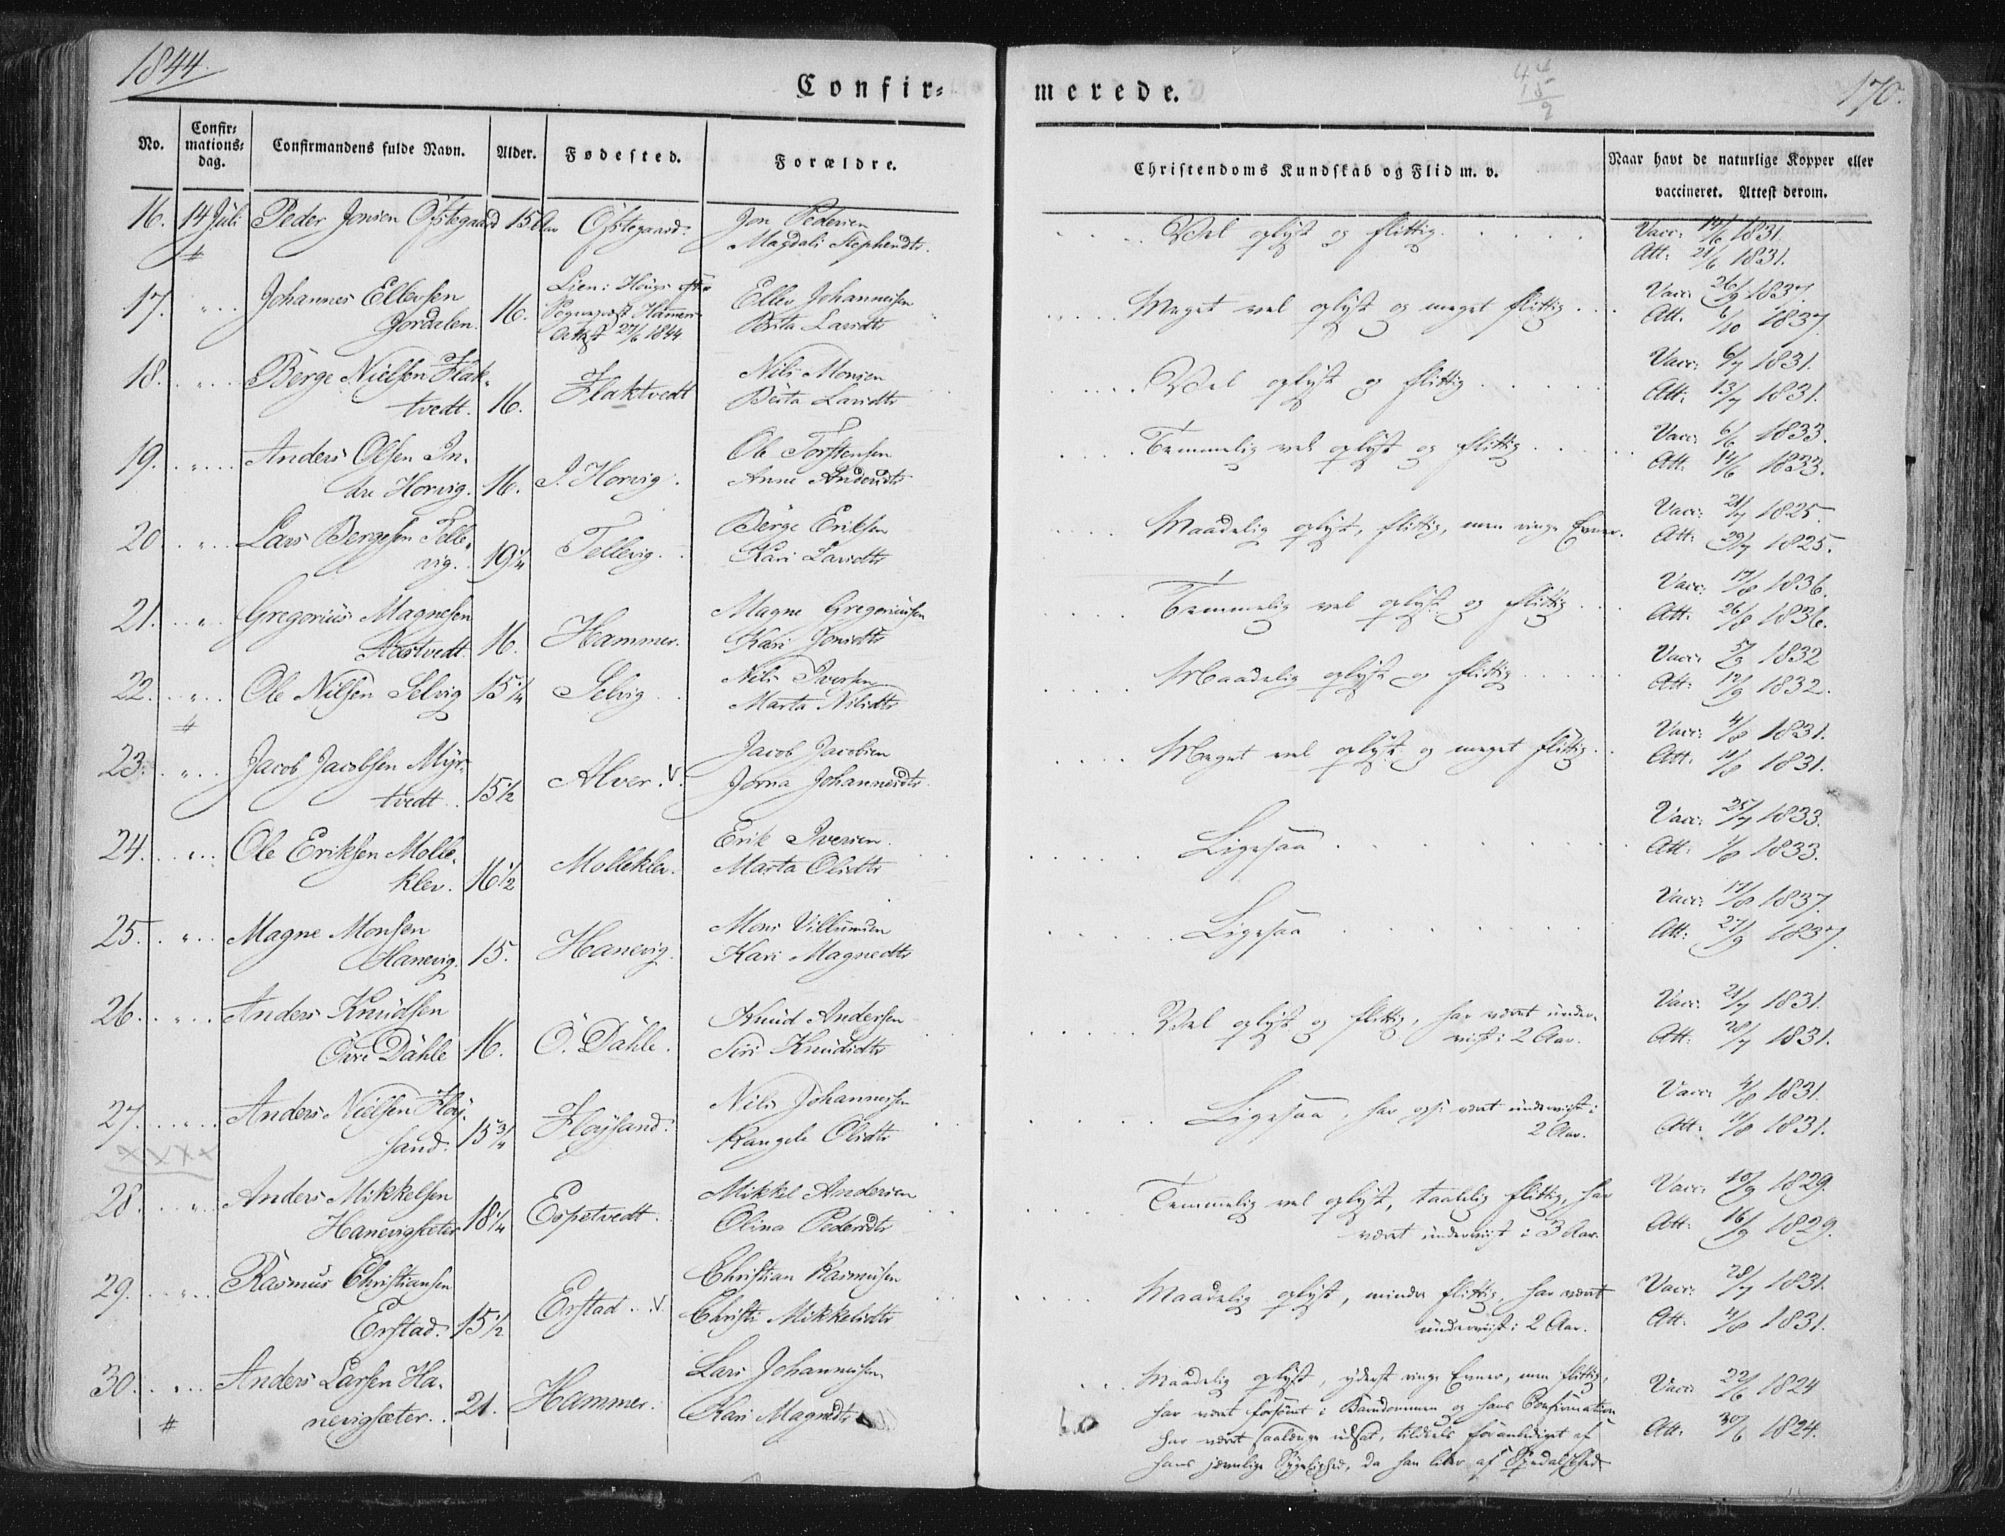 1844.
Confir=
merede.
44
15
9
170.
No.
Confir=
mations=
dag.
Confirmandens fulde Navn.
Alder.
Fødested.
Forældre.
Christendoms Kundskab og Flid m. v.
Naar havt de naturlige Kopper eller
vaccineret. Attest derom.
16. 14 Juli Peder Jonsen Ofstegaard 15 Aar Ofstegaard. Jon Pedersen
Magdali Stephensdtr.
Vel oplyst og flittig.
Vacc: 14/6 1831.
Att: 21/6 1831.
17. " Johannes Ellevsen
Jordalen. 16.
Attest 27/6 1844
Ellev Johannesen
Brita Larsdtr
Meget vel oplyst og meget flittig
Vacc: 26/9 1837.
Att. 6/10 1837.
18. " Børge Nielsen Flak-
tvedt. 16. Flaktvedt
Nils Monsen
Brita Larsdtr
Vel oplyst og flittig
Vacc: 6/7 1831.
Att: 13/7 1831.
19. " Anders Olsen In-
dre Horvig. 16. I. Horvig.
Ole Torstensen
Anne Andersdtr
Temmelig vel oplyst og flittig
Vacc: 6/6 1833.
Att. 14/6 1833.
20 " Lars Børgesen Telle-
vig. 19 1/4 Tellevig.
Børge Eriksen
Kari Larsdtr
Maadelig oplyst, flittig, men ringe Evner.
Vacc: 21/7 1825.
Att: 29/7 1825.
21. " Gregorius Magnesen
Rostvedt. 16. Hammer.
Magne Gregoriussen
Kari Jonsdtr
Temmelig vel oplyst og flittig
Vacc: 17/8 1836.
Att: 26/8 1836.
22. " Ole Nilsen Selvig 15 1/4 Selvig
Nils Iversen
Marta Nilsdtr
Maadelig oplyst og flittig
Vacc: 5/9 1832
Att: 12/9 1832.
23. " Jacob Jacobsen Myr-
tvedt 15 1/2 Alver. V.
Jacob Jacobsen
Jorna Johannesdtr.
Meget vel oplyst og meget flittig
Vacc: 4/8 1831.
Att: 11/8 1831.
24. " Ole Eriksen Molle-
klev. 16 1/2 Molleklev.
Erik Iversen.
Marta Olsdtr
Ligesaa
Vacc: 25/7 1833.
Att: 1/8 1833.
25. " Magne Monsen
Hanevig. 15. Hanevig.
Mons Villumsen
Kari Magnesdtr
Ligesaa
Vacc: 17/8 1837.
Att: 27/9 1837.
26. " Anders Knudsen
Övre Dahle 16. Ö. Dahle.
Knud Andersen
Siri Knudsdtr
Vel oplyst og flittig, har været under-
vist i 2 Aar.
Vacc: 21/7 1831.
Att: 28/7 1831.
27. " Anders Nielsen Floy-
sand. 15 3/4 Floysand.
Nils Johannesen
Rangele Olsdtr
Ligesaa, har ogsaa været underviist i
2 Aar.
Vacc: 4/8 1831.
Att: 11/8 1831.
xxxx
28. " Anders Mikkelsen
Hanevigsæter 18 1/4 Espetvedt.
Mikkel Andersen
Olina Pedersdtr
Temmelig vel oplyst, taalelig flittig, har
været underviist i 3 Aar.
Vacc: 10/9 1829.
Att: 16/9 1829.
29. " Rasmus Christiansen
Erstad. 15 1/2 Erstad. V.
Christian Rasmusen
Christi Mikkelsdtr
Maadelig oplyst, mindre flittig, har været
underviist i 2 Aar.
Vacc: 28/7 1831.
Att. 4/8 1831.
30. " Anders Larsen Ha-
nevigsæter. 21. Hammer.
Lars Johannesen
Kari Magnesdtr
Maadelig oplyst, yderst ringe Evner, men flittig,
har været forsömt i Barndommen og hans Confirmation
har været saalænge udsat, tildeels foranlediget af
hans jævnlige Sygelighed, da han lider af Spedalskhed.
Vacc: 22/6 1824
Att. 30/6 1824.